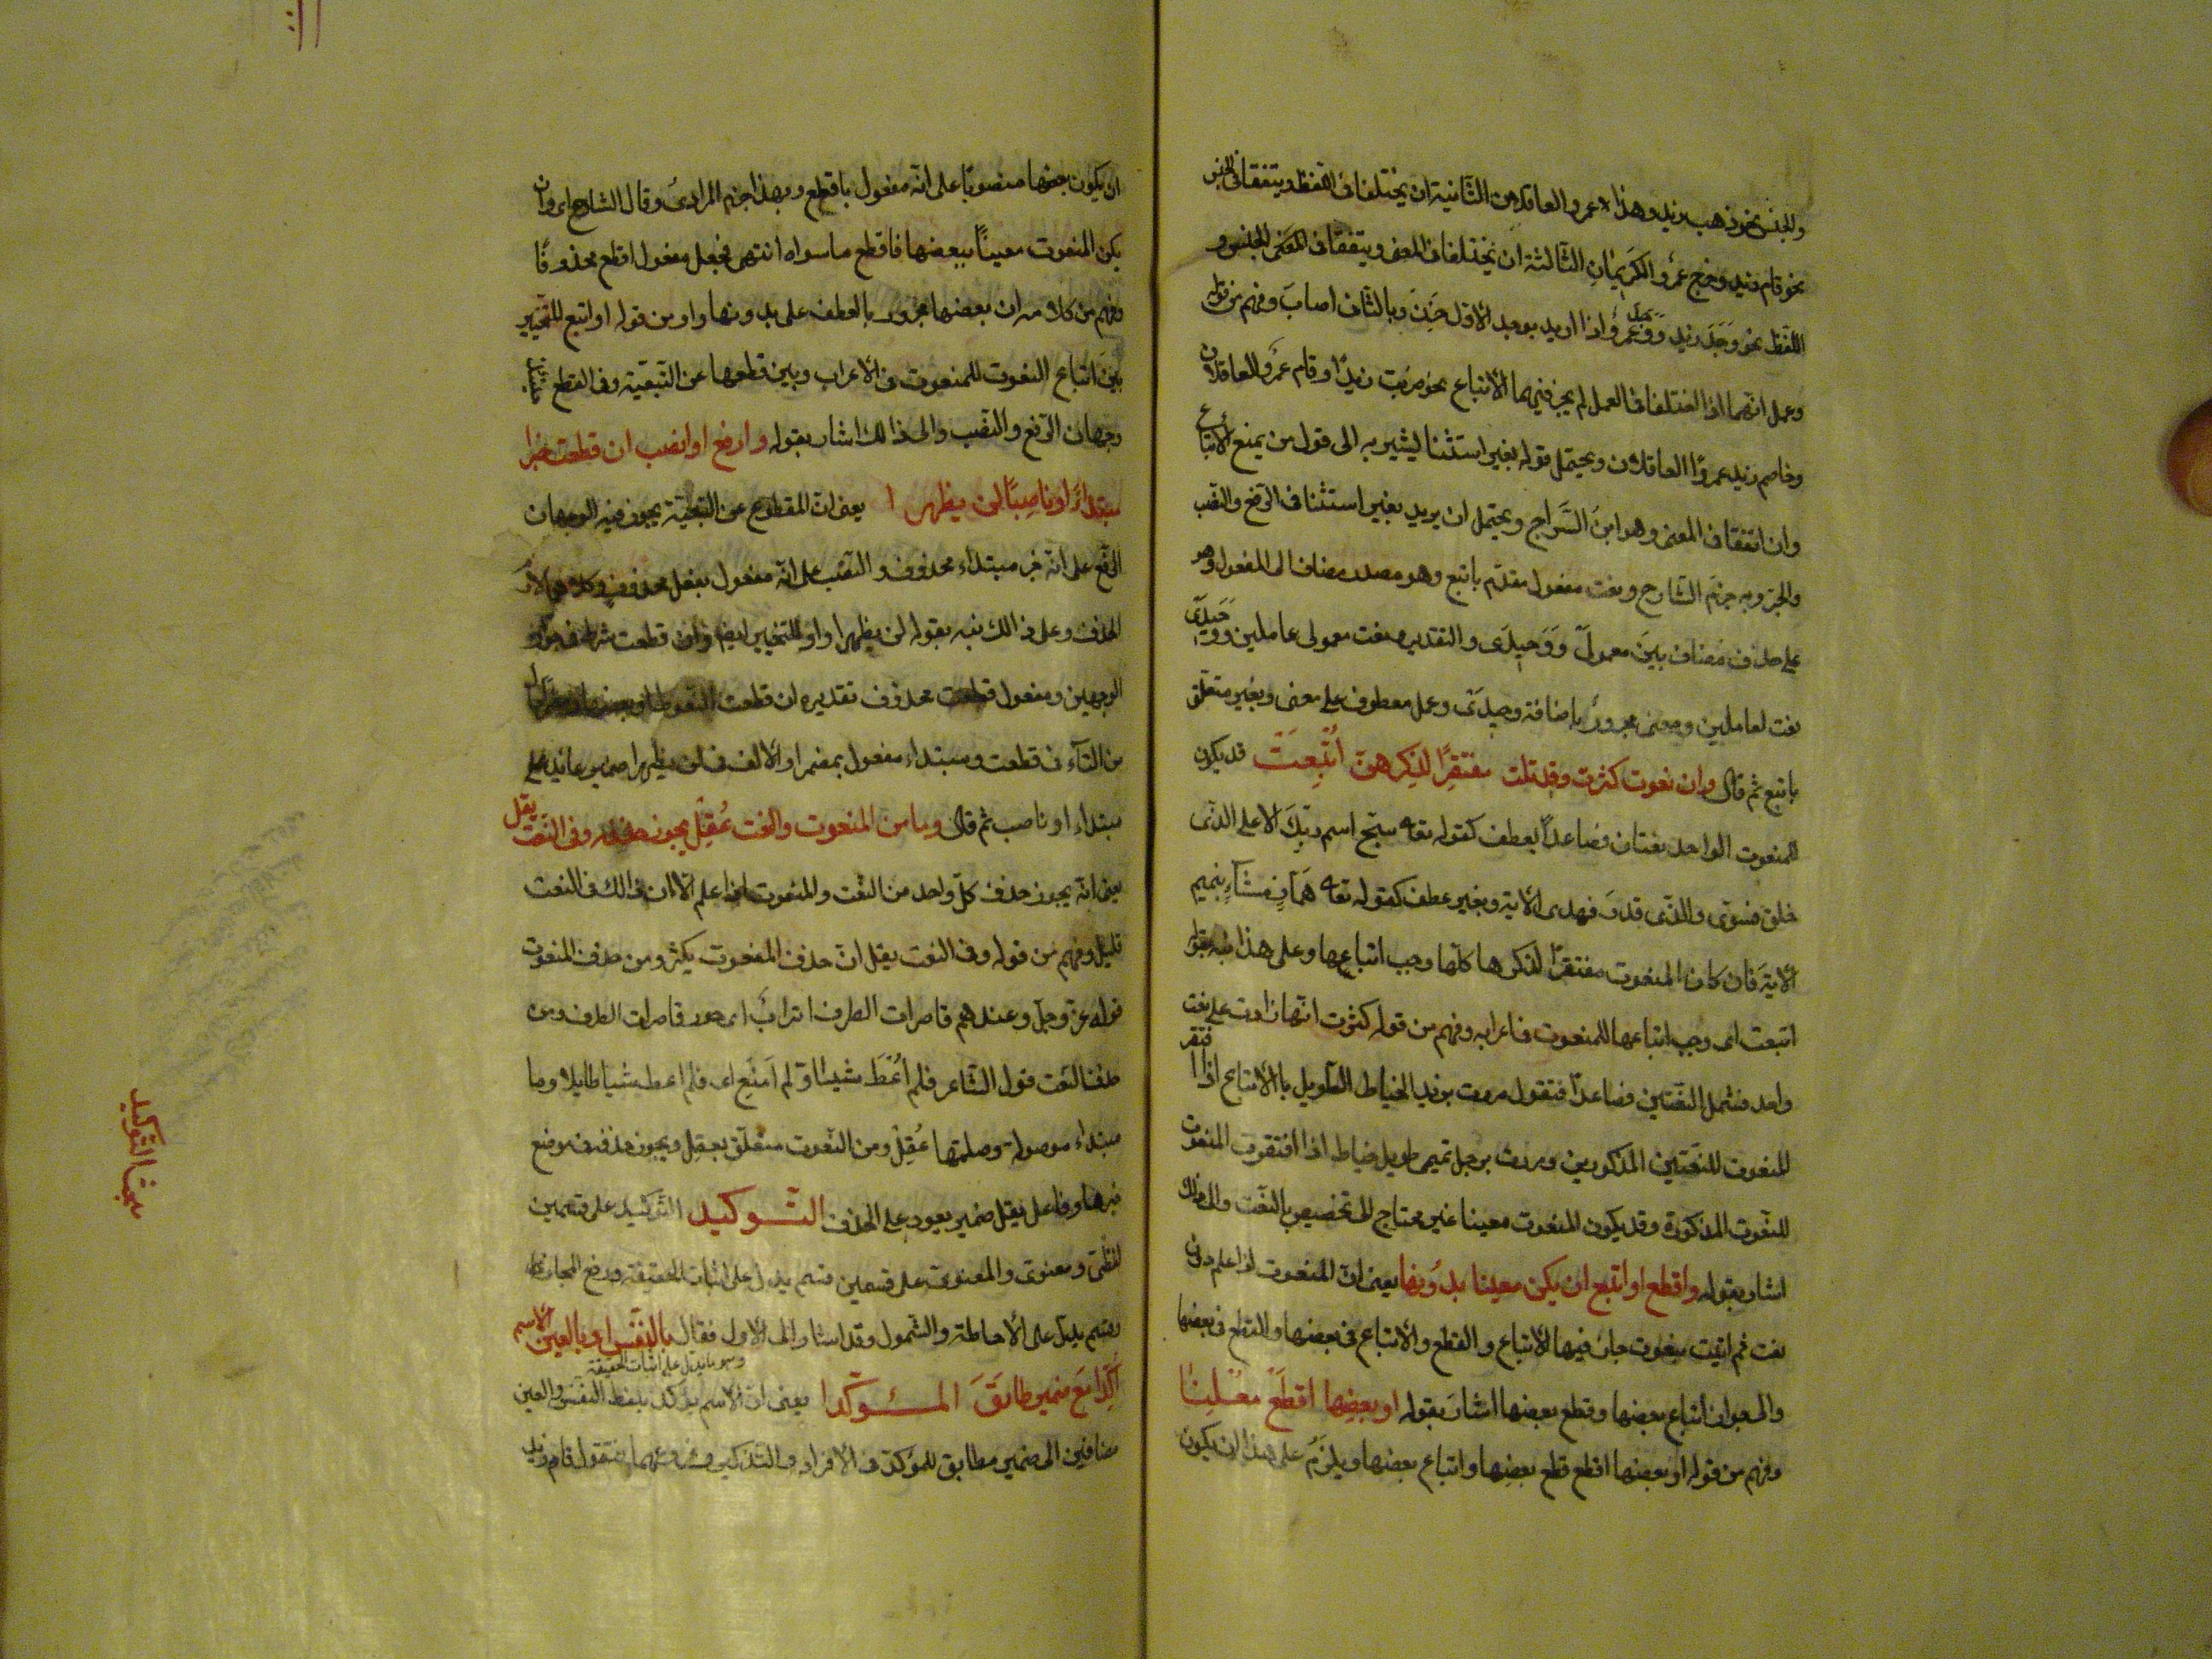 والجنس نحو ذهب زيد وهذا عمرو العاقلان الثانية ان يختلفا فى اللفظ ويتفقا فى الجنس
نحو قام زيد وخرج عمرو الكريمان الثالثة ان يختلفا فى المعنى ويتفقا فى الجنس و
اللفظ نحو وجد زيد ووجد عمرو اذا اريد بوجد الاول حزن وبالثانى اصاب وفهم من قوله
وعمل انهما اذا اختلفا فى العمل لم يجز فيهما الاتباع نحو ضربت زيدا وقام عمرو العاقلان
وخاصم زيد عمروا العاقلان ويحتمل قوله بغير استثنا ليشير به الى قول من يمنع الاتباع
وان اتفقا فى المعنى وهو ابن السّراج ويحتمل ان يريد بغير استثنا فى الرّفع والنّصب
والجرّ وبه جزم الشّارح ونعت مفعول مقدّم باتبع وهو مصدر مضاف الى المفعول وهو
على حذف مضاف بين معمولى ووحيدى والتقدير ونعت معمولى عاملين وحيدى
نعت لعاملين ومعنى مجرور بإضافة وحيدى وعمل معطوف على معنى وبغير متعلق
باتبع ثم قال وان نعوت كثرت وقد تلت مفتقرًا لذكرهنّ أُتبعت قد يكون
للمنعوت الواحد نعتان فصاعدًا بعطف كقوله تعا سبّح اسم ربّك الاعلى الّذى
خلق فسوّى والّذى قدر فهدى الاية وبغير عطف كقوله تعا همّاز مشّاء بنميم
الاية فان كان المنعوت مفتقرًا لذكرها كلّها وجب اتباعها وعلى هذا نبه بقوله
اتبعت اى وجب اتباعها للمنعوت فى اعرابه وفهم من قوله كثرت انّها زادت على نعت
واحد فشمل النّعتين فصاعدًا فتقول مررت بزيد الخياط الطّويل بالاتباع اذا افتقر
المنعوت للنّعتين المذكورين ومررت برجل تميمى طويل خياط اذا افتقرت المنعوت
للنّعوت المذكورة وقد يكون المنعوت معينا غير محتاج الى تخصيص بالنّعت والى ذلك
اشار بقوله واقطع او اتبع ان يكن معينا بدونها يعنى انّ المنعوت اذا علم بدون
نعت ثم اتيت بنعوت جاز فيها الاتباع والقطع والاتباع فى بعضها والقطع فى بعضها
والى جواز اتباع بعضها وقطع بعضها اشار بقوله او بعضها اقطع معلنا
وفهم من قوله او بعضها اقطع قطع بعضها واتباع بعضها ويلزم على هذا ان يكون
ان يكون بعضها منصوبًا على انّه مفعول باقطع وبهذا جزم المرادى وقال الشارح اى وان
يكن المنعوت معينًا ببعضها فاقطع ما سواه انتهى فجعل مفعول اقطع محذوفًا
وفهم من كلامه ان بعضها مجرور بالعطف على بدونها واو من قوله او اتبع للتّخيير
بين اتباع النعوت للمنعوت فى الاعراب وبين قطعها عن التّبعيّة وفى القطع
وجهان الرّفع والنّصب والى ذالك اشار بقوله وارفع او انصب ان قطعت مضمرا
مبتداءً او ناصبًا لن يظهرا يعنى انّ المقطوع عن التبعيّة يجوز فيه الوجهان
الرّفع على انّه خبر مبتداء محذوف والنّصب على انّه مفعول بفعل محذوف
الحذف وعلى ذالك نبه بقوله لن يظهرا واو للتخيير ايضا وان قطعت شرط
الوجهين ومفعول قطعت محذوف تقديره ان قطعت
من التّاء فى قطعت ومبتداء مفعول بمضمرا والالف فى لن يظهرا ضمير عائد على
مبتداء او ناصب ثم قال وما من المنعوت والنعت عُقِل يجوز حذفه وفى النّعت يقلّ
يعنى انّه يجوز حذف كلّ واحد من النّعت والمنعوت اذا علم الّا ان ذالك فى النعت
قليل وفهم من قوله وفى النعت يقلّ انّ حذف المنعوت يكثر ومن حذف المنعوت
قوله عزّ وجلّ وعندهم قاصرات الطرف اتراب اى حور قاصرات الطرف ومن
حذف النّعت قول الشّاعر فلم أُعْطَ شيئا ولم اُمنع اى فلم اعط شيئا طايلا وما
مبتداء موصولة وصلتها عُقِل ومن النّعوت متعلّق بعقل ويجوز حذفه فى موضع
خبرها وفاعل يقلّ ضمير يعود على الحذف التّوكيد التّوكيد على قسمين
لفظىّ ومعنوى والمعنوى على قسمين قسم يدل على اثبات الحقيقة ورفع المجاز
وقسم يدلّ على الاحاطة والشّمول وقد اشار الى الاول فقال بالنّفس او بالعين الاسم
وهو ما يدل على اثبات الحقيقة
أُكّدا مع ضمير طابق المؤكّدا يعنى ان الاسم يؤكّد بلفظ النفس والعين
مضافين الى ضمير مطابق للمؤكّد فى الافراد والتذكير وفروعهما فتقول قام زيد
مبحث التّوكيد